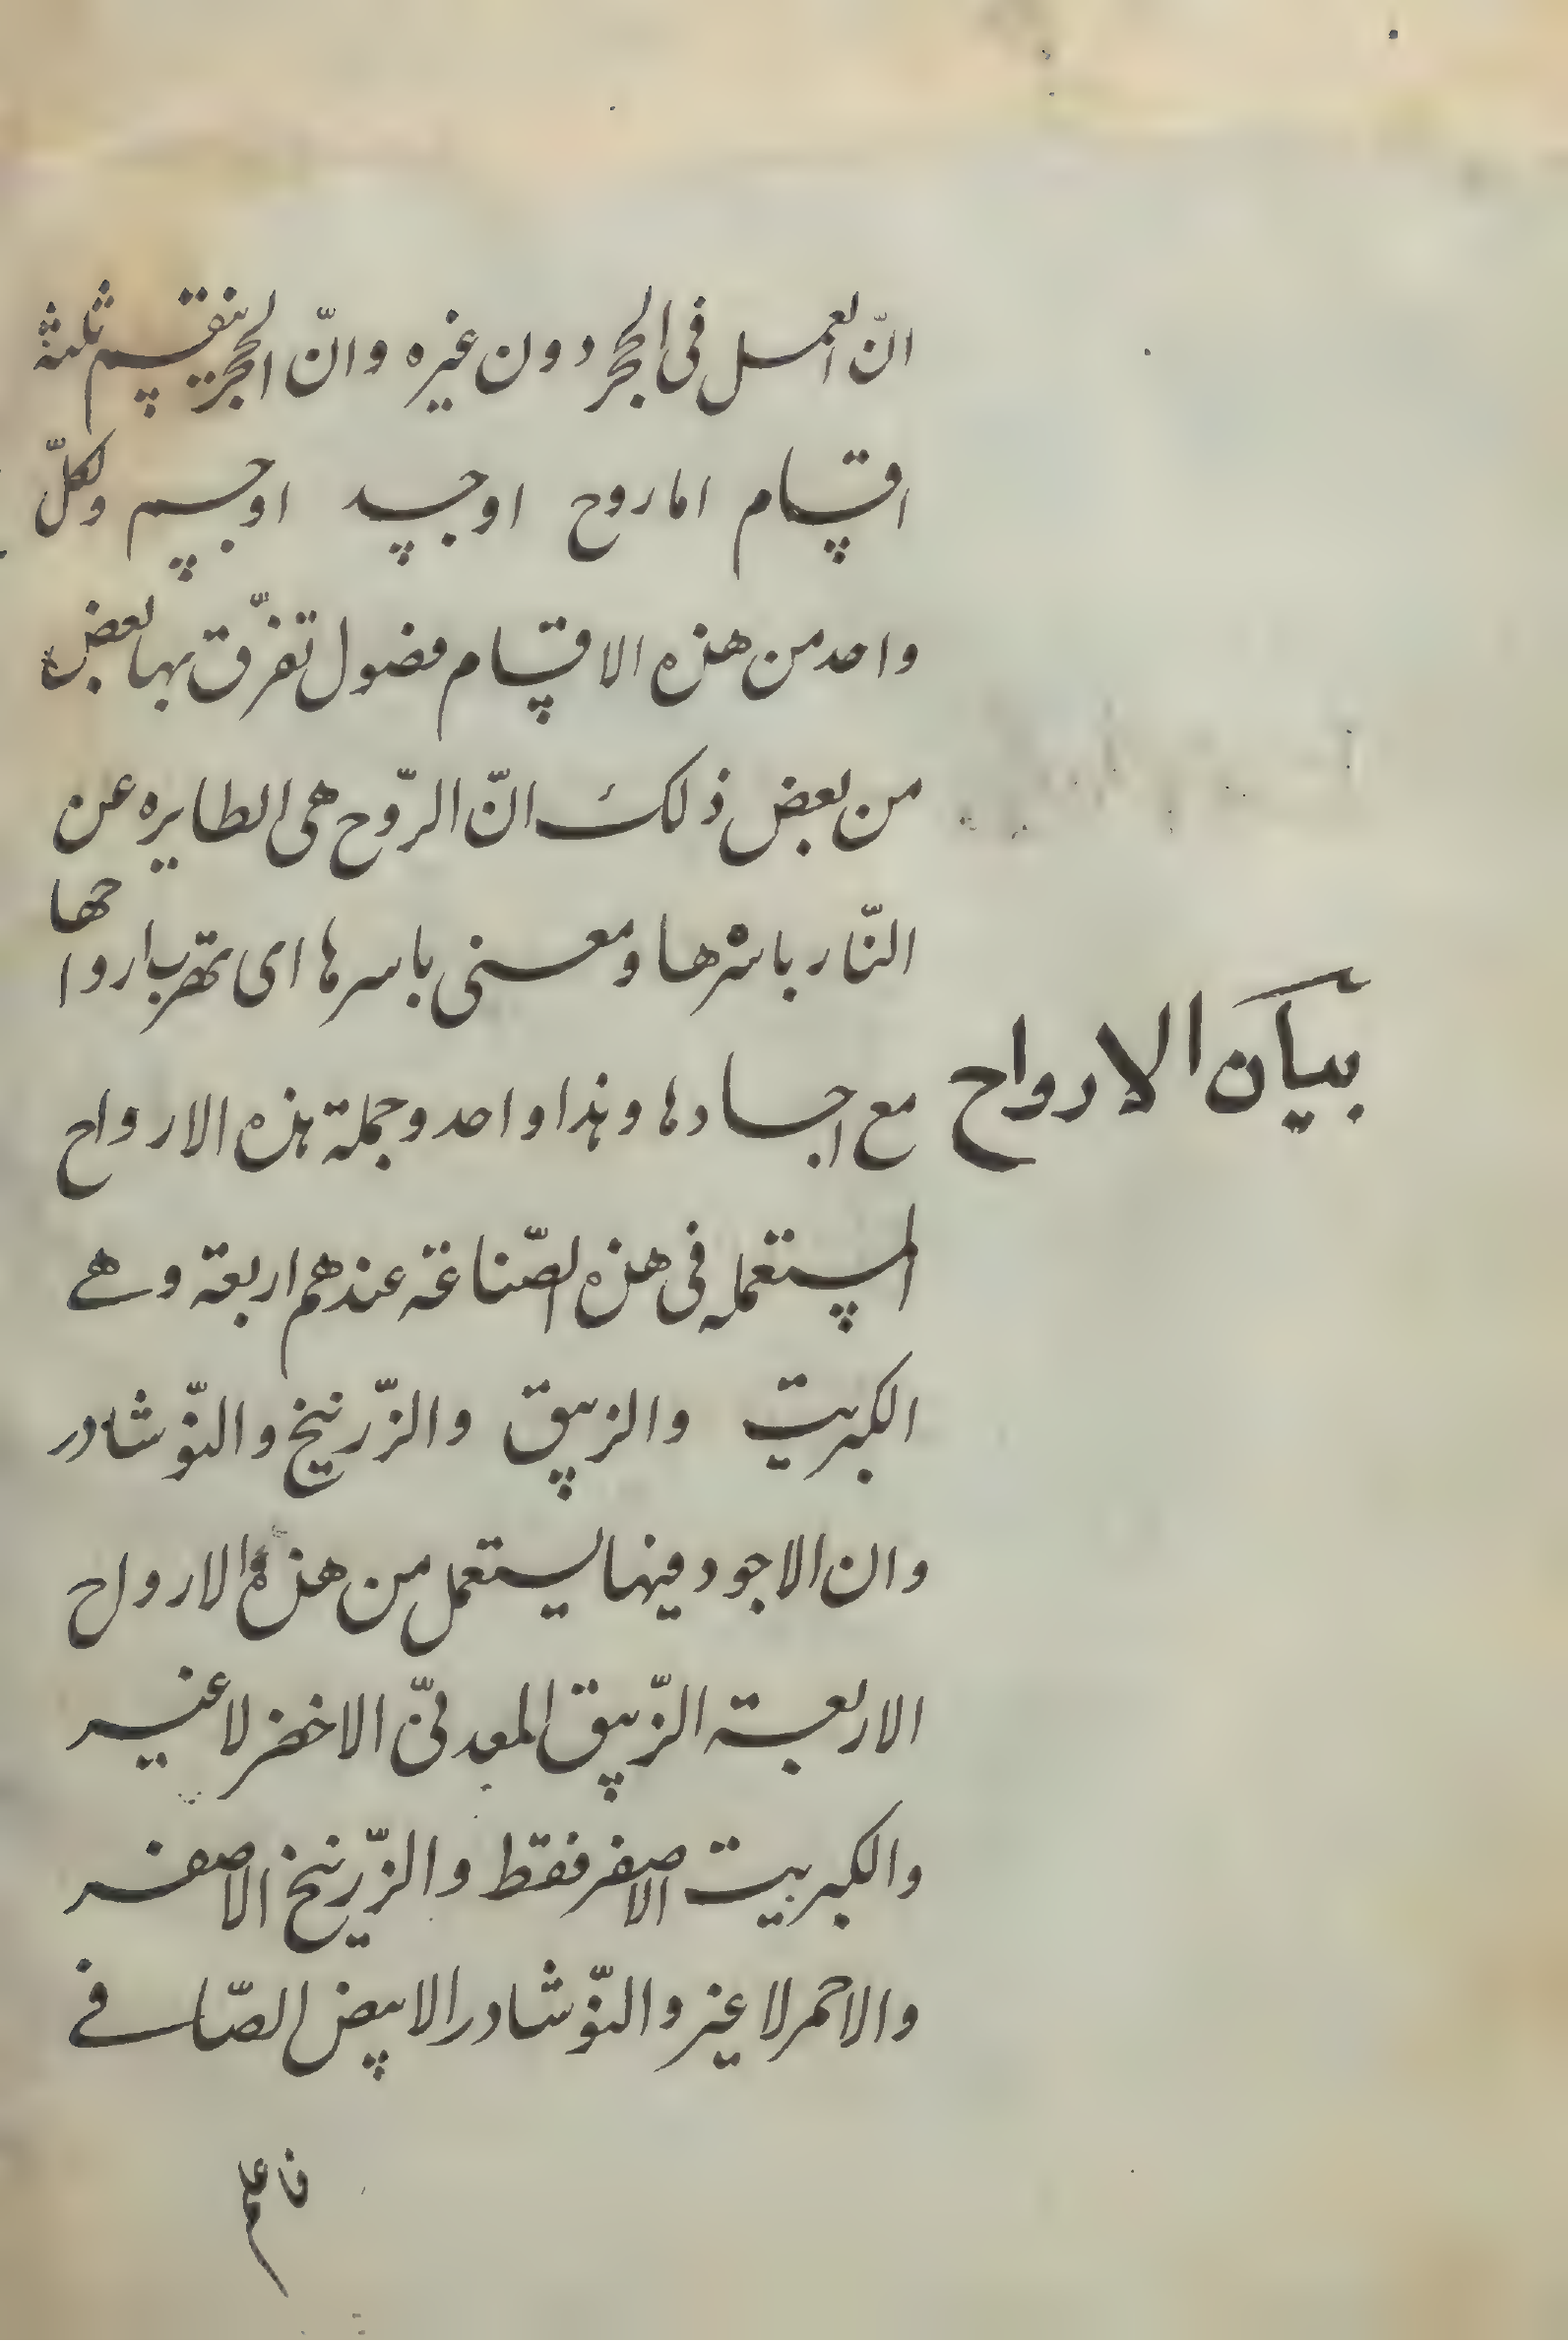 انّ العمل فى الحجر دون غيره وانّ الحجر ينقسم ثلثة
اقسام اما روح او جسد او جسم ولكلّ
واحد من هذه الاقسام فصول تفرّق بها بعض
من بعض ذلك انّ الرّوح هى الطايره عن
النّار باسْرها ومعنى باسرها اى تهرب ارواحها
بيان الارواح
مع اجسادها وهذا واحد وجملة هذه الارواح
المستعمله فى هذه الصّناعة عندهم اربعة وهے
الكبريت والزيبق والزّرنيخ والنّوشادر
وان الاجود فيها يستعمل من هذه الارواح
الاربعة الزّيبق المعدنىّ الاخضر لا غير
والكبريت الاصفر فقط والزّرنيخ الاصفر
والاحمر لا غير والنّوشادر الابيض الصّافے
فاعلم